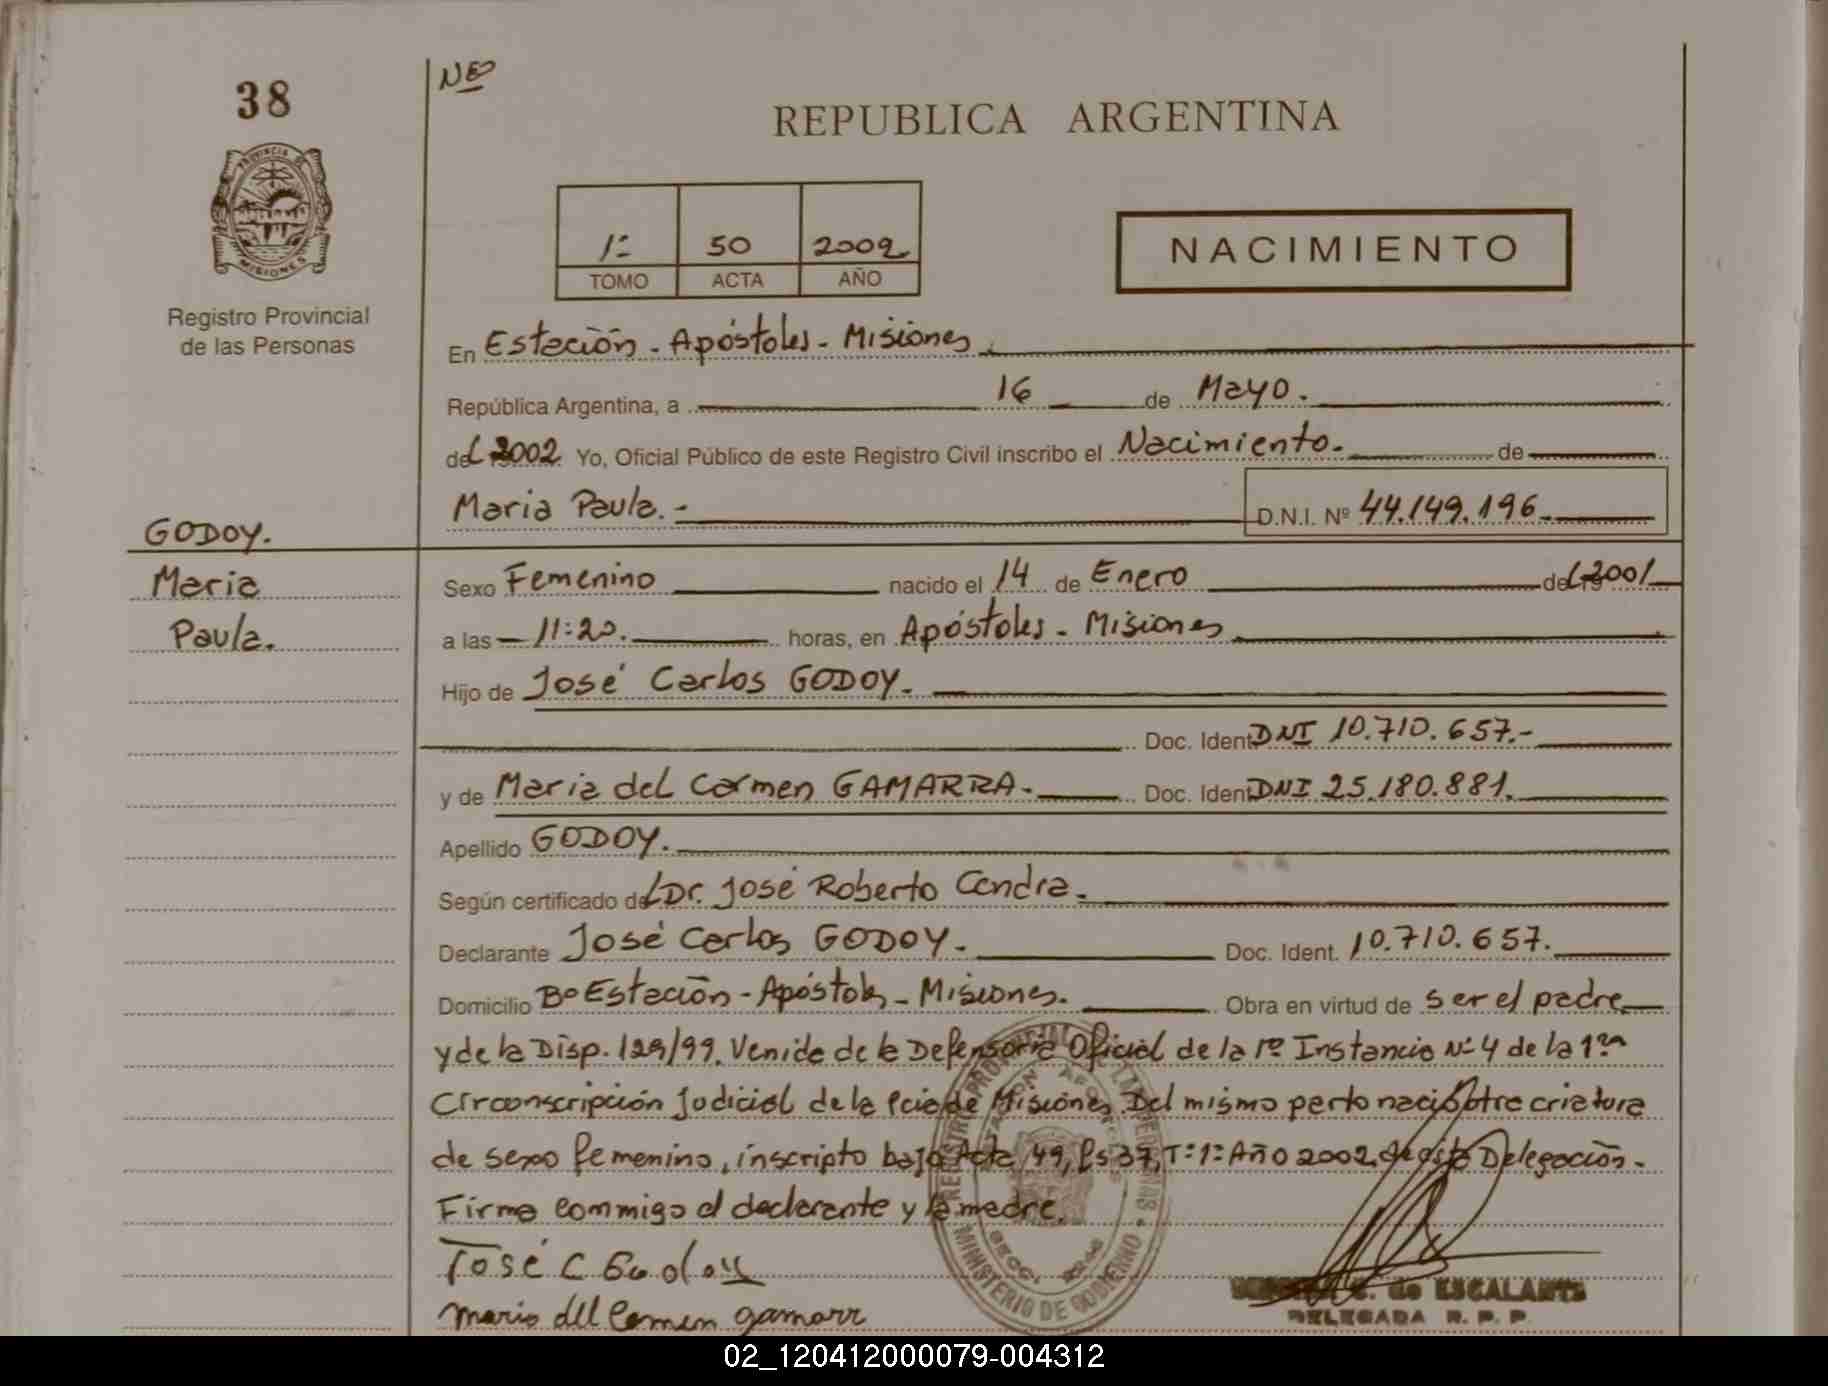 38
PROVINCIA DE
MISIONES
Registro Provincial
de las Personas
GODOY.
Maria
Paula.
NEO
REPUBLICA ARGENTINA
1º 50 2002
TOMO ACTA AÑO
NACIMIENTO
En Estación - Apóstoles - Misiones
República Argentina, a 16 de Mayo.
del 2002 Yo, Oficial Público de este Registro Civil inscribo el Nacimiento. de
Maria Paula.- D.N.I. Nº 44.149.196
Sexo Femenino nacido el 14 de Enero del 2001
a las 11:20. horas, en Apóstoles - Misiones
Hijo de José Carlos GODOY.
Doc. Ident DNI 10.710.657.-
y de Maria del Carmen GAMARRA. Doc. Ident DNI 25.180.881.
Apellido GODOY.
Según certificado del Dr. José Roberto Cendra.
Declarante José Carlos GODOY. Doc. Ident. 10.710.657.
Domicilio Bº Estación - Apóstoles - Misiones. Obra en virtud de ser el padre
y de la Disp. 129/99. Venida de la Defensoria Oficial de la 1º Instancia Nº 4 de la 1ra
Circonscripción Judicial de la Pcia de Misiones. Del mismo parto nació otra criatura
de sexo femenino, inscripto bajo Acta 49, Fs 37, Tº 1º Año 2002, de esta Delegación.
Firma conmigo el declarante y la madre.
José C Godoy
maria del Carmen gamarr
MINISTERIO DE GOBIERNO
de ESCALANTE
DELEGADA R. P. P.
02_120412000079-004312